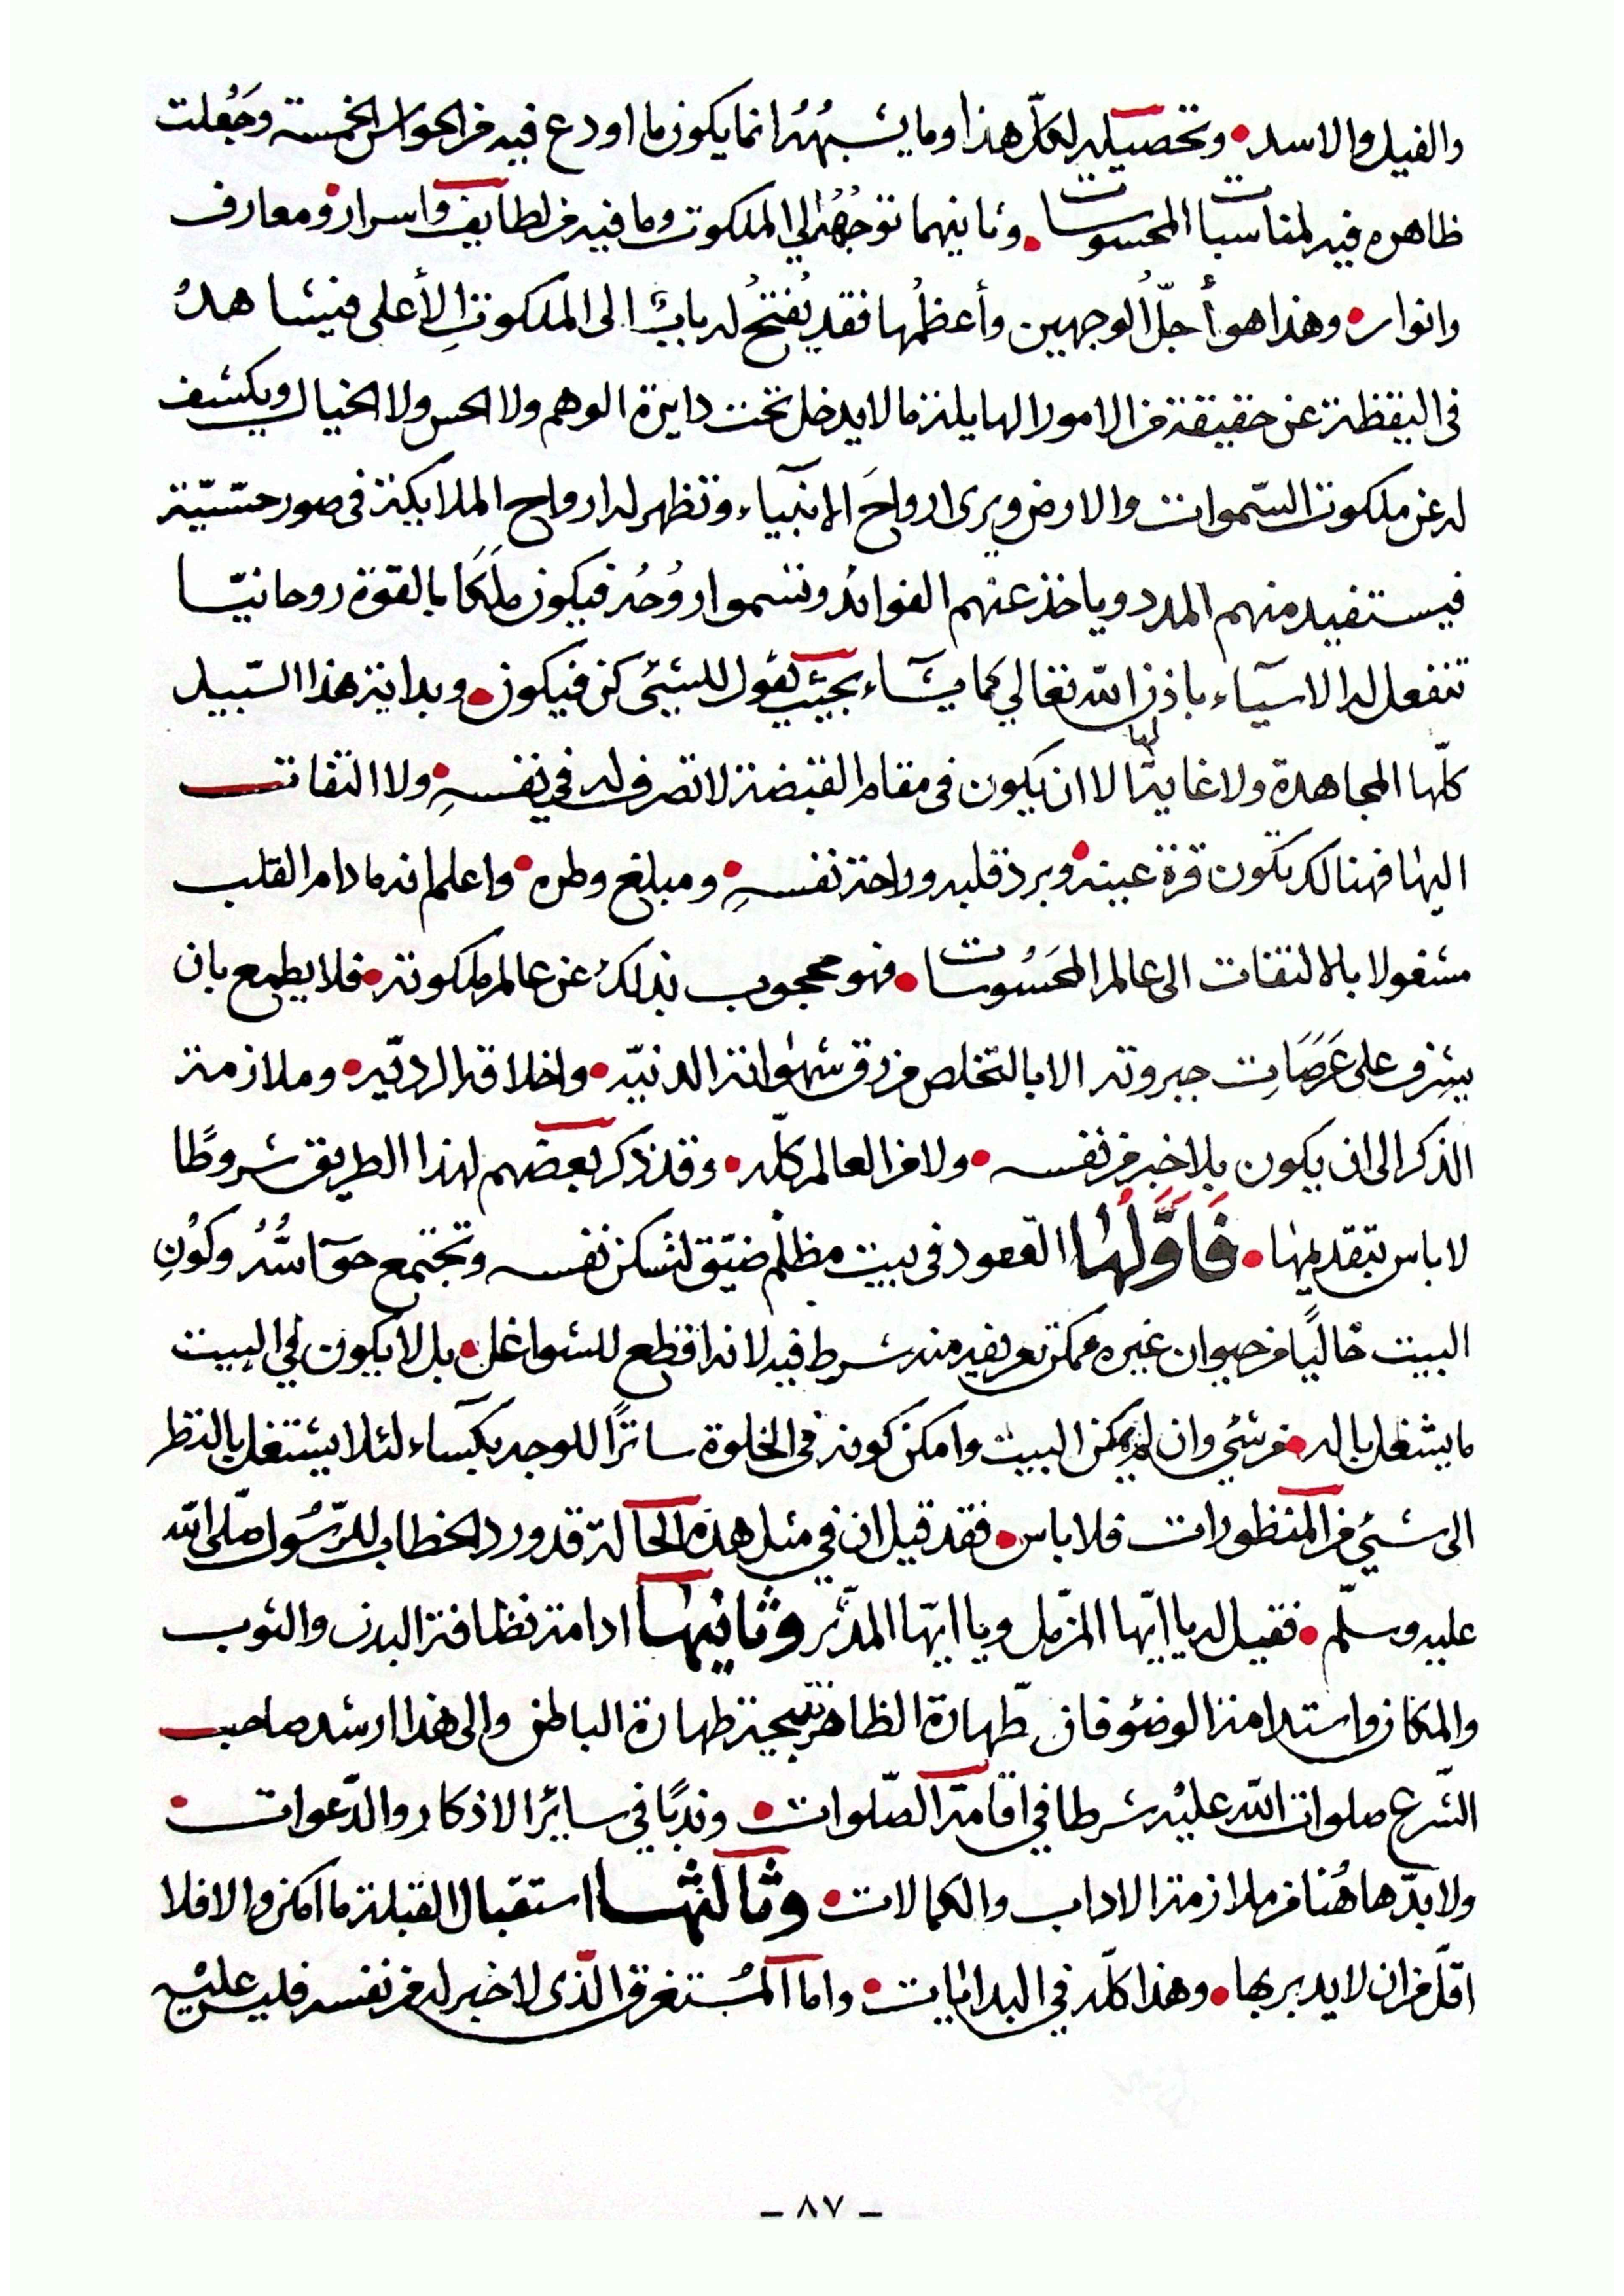 والفيل والاسد • وتحصيله لكلّ هذا وما يشبهُهُ انما يكون بما اودع فيه من الحواس الخمسة وجُعلت
ظاهره فيه لمناسبات المحسوسات • وثانيهما توجُّهُهُ الى الملكوت وما فيه من لطايف واسرار • ومعارف
وانوار • وهذا هو أجلّ الوجهين وأعظمُها فقد يُفتحُ له بابٌ الى الملكوتِ الأعلى فيشاهدُ
فى اليقظة عن حقيقة من الامور الهايلة ما لا يدخل تحت دايرة الوهم ولا الحس ولا الخيال ويكشف
له عن ملكوت السّموات والارض ويرى ارواحَ الانبياء وتظهر له ارواح الملايكة فى صور حسّيّة
فيستفيد منهم المدد وياخذ عنهم الفوائد وتسموا روُحُه فيكون ملَكًا بالقوّة روحانيّا
تنفعل له الاشياء باذن الله تعالي كما يشاء بحيث يقول للشيئ كن فيكون • وبداية هذا السّبيل
كلّها المجاهدة ولا غاية لها الا ان يكون فى مقام القبضة لا تصرف له في نفسهِ • ولا التفات
اليها فهنالك تكون قرة عينه • وبرد قلبه وراحة نفسهِ • ومبلغ وطره • واعلم انه ما دام القلب
مشغولا بالالتفات الى عالم المحَسُوسات • فهو محجوب بذلك عن عالم ملكوته • فلا يطمع بان
يشرف على عَرَصَاتِ جبروته الا بالتخلص من رق شهواته الدنيّه • واخلاقه الرديّه • وملازمة
الذكر الى ان يكون بلا خبر من نفسه • ولا من العالم كلّه • وقد ذكر بعضهم لهذا الطريق شروطًا
لا باس بتقديمها • فَاَوَّلُها القعود فى بيت مظلم ضيّق لتسكن نفسه وتجتمع حوآسُّهُ وكوُنِ
البيت خاليًا من حيوان غيره ممكن تعريفه منه شرط فيه لانه اقطع للشواغل • بل لا يكون في البيت
ما يشغل باله • من شئي وان لم يمكن البيت وامكن كونه فى الخلوة ساترًا للوجه بكساء لئلا يشتغل بالنظر
الى شئي من المنظورات فلا باس • فقد قيل ان في مثل هذه الحالة قد ورد الخطاب للرّسُول صلّى الله
عليه وسلّم • فقيل له يا ايّها المزّمل ويا ايّها المدّثر وثانيها ادامة نظافة البدن والثوب
والمكان واستدامة الوضؤ فان طّهارة الظاهر نتيجة طهارة الباطن والى هذا ارشد صاحب
الشّرع صلوات الله عليْه شرطا في اقامة الصّلوات • وندبًا في سايرُ الاذكار والدّعوات •
ولا بدّ هاهُنا من ملازمة الاداب والكمالات • وثالثها استقبال القبلة ما امكن والا فلا
اقلّ من ان لا يدبر بها • وهذا كلّه في البدايات • واما المُستغرق الّذى لا خبر له من نفسه فليس عليْه
- ٨٧ -